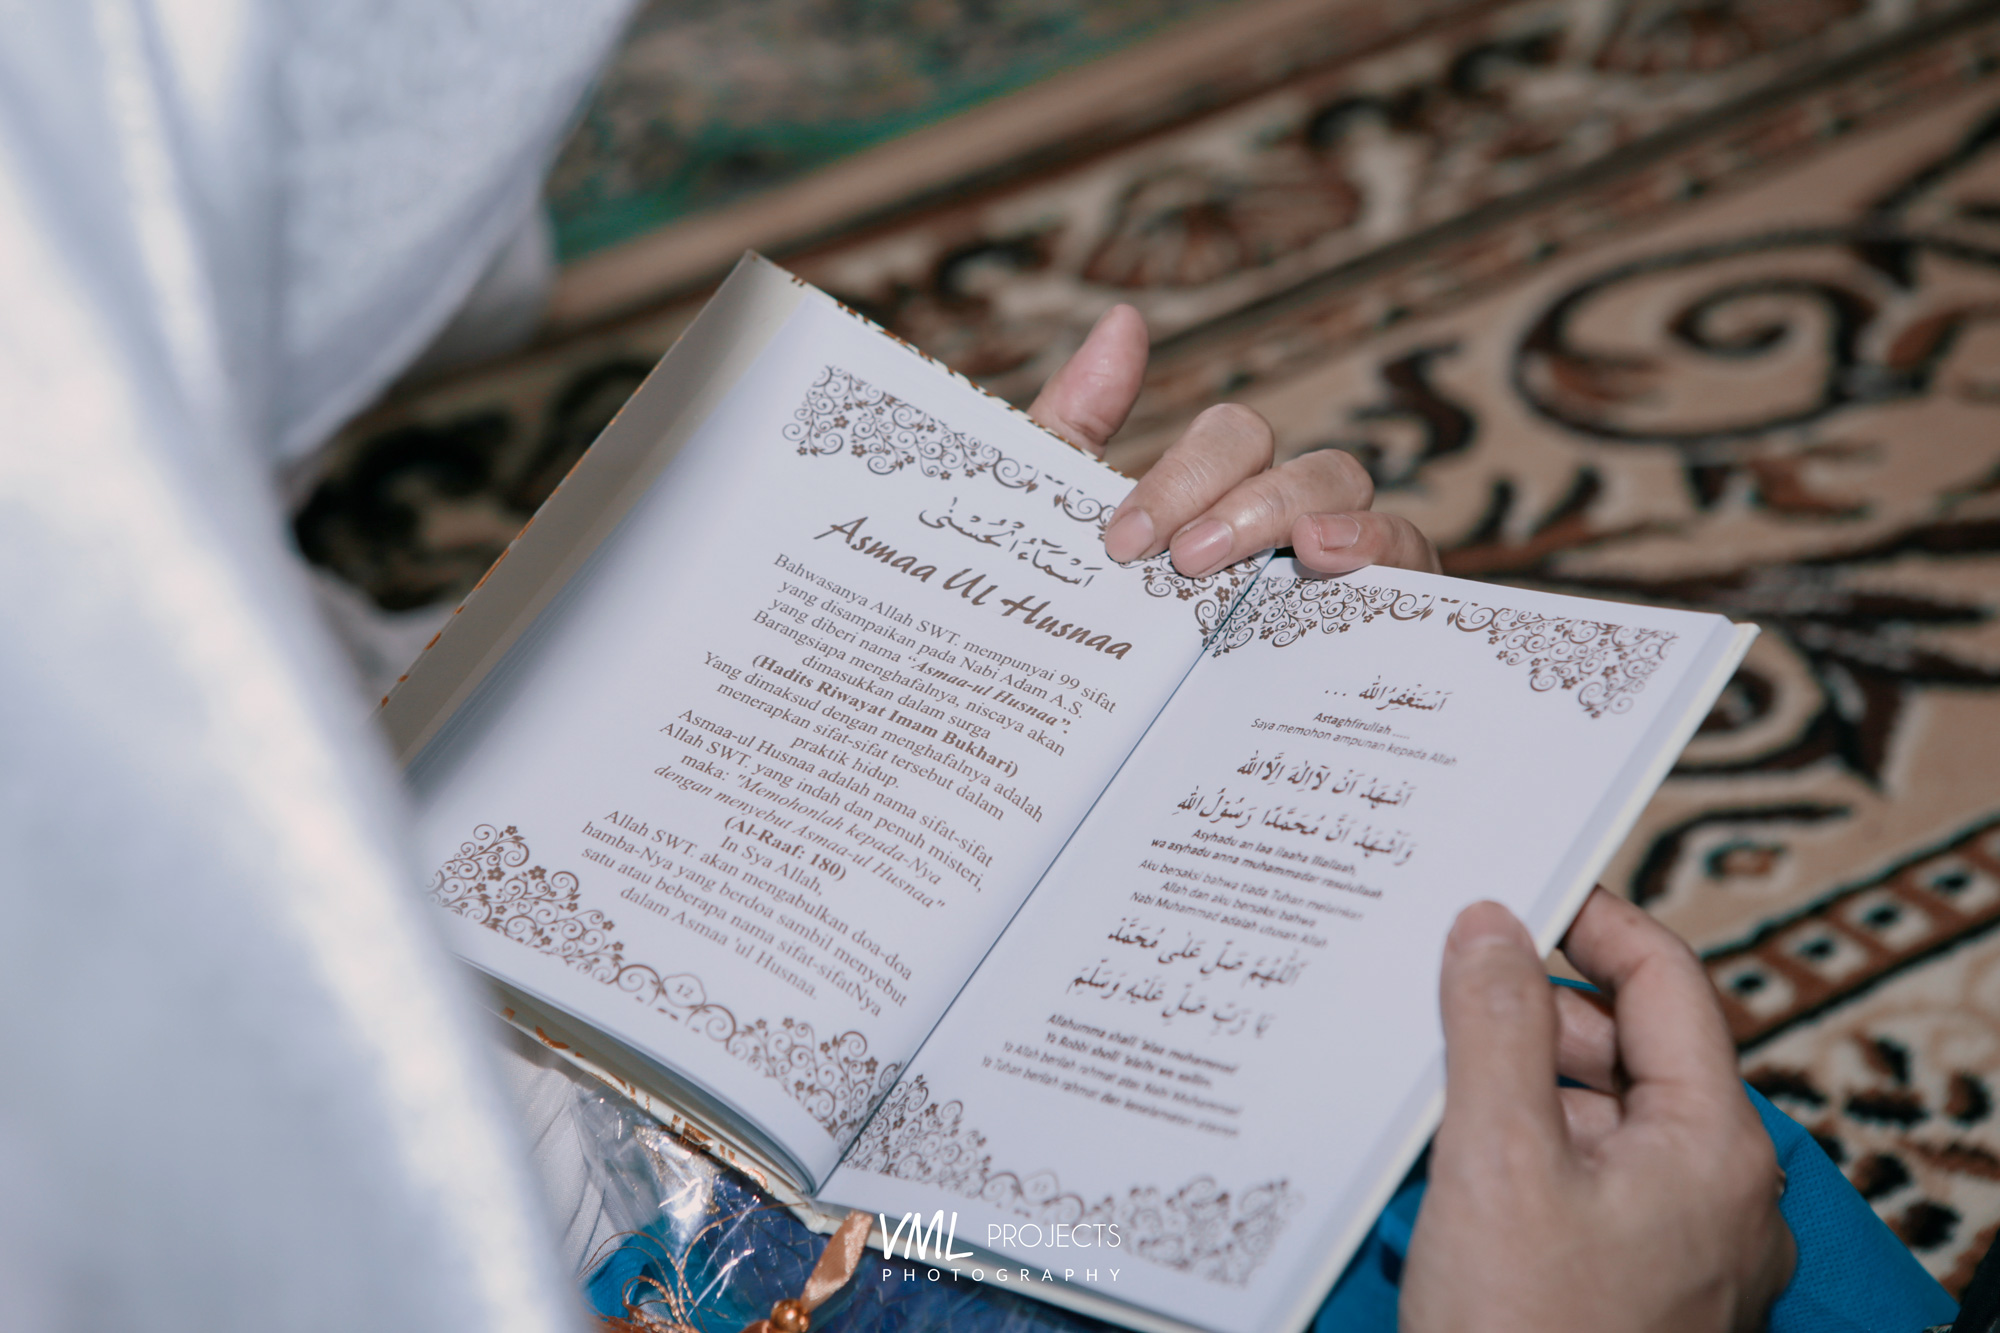 اَسْمَآءُ الْحُسْنٰى
Asmaa Ul Husnaa
Bahwasanya Allah SWT. mempunyai 99 sifat
yang disampaikan pada Nabi Adam A.S.
yang diberi nama “Asmaa-ul Husnaa”.
Barangsiapa menghafalnya, niscaya akan
dimasukkan dalam surga
(Hadits Riwayat Imam Bukhari)
Yang dimaksud dengan menghafalnya adalah
menerapkan sifat-sifat tersebut dalam
praktik hidup.
Asmaa-ul Husnaa adalah nama sifat-sifat
Allah SWT. yang indah dan penuh misteri,
maka: "Memohonlah kepada-Nya
dengan menyebut Asmaa-ul Husna"
(Al-Raaf: 180)
In Sya Allah,
Allah SWT. akan mengabulkan doa-doa
hamba-Nya yang berdoa sambil menyebut
satu atau beberapa nama sifat-sifatNya
dalam Asmaa 'ul Husnaa.
12
اَسْتَغْفِرُالله ...
Astaghfirullah .....
Saya memohon ampunan kepada Allah
اَشْهَدُ اَنْ لَآاِلٰهَ اِلَّااللهُ
وَاَشْهَدُ اَنَّ مُحَمَّدًا رَسُوْلُ اللهِ
Asyhadu an laa ilaaha illallaah,
wa asyhadu anna muhammadar rasulullaah
Aku bersaksi bahwa tiada Tuhan melainkan
Allah dan aku bersaksi bahwa
Nabi Muhammad adalah utusan Allah
اَللّٰهُمَّ صَلِّ عَلٰى مُحَمَّدْ
يَا رَبِّ صَلِّ عَلَيْهِ وَسَلِّمْ
Allahumma shalli 'alaa muhammad
Ya Robbi sholli 'alaihi wa sallim
Ya Allah berilah rahmat atas Nabi Muhammad
Ya Tuhan berilah rahmat dan keselamatan
VML PROJECTS
PHOTOGRAPHY